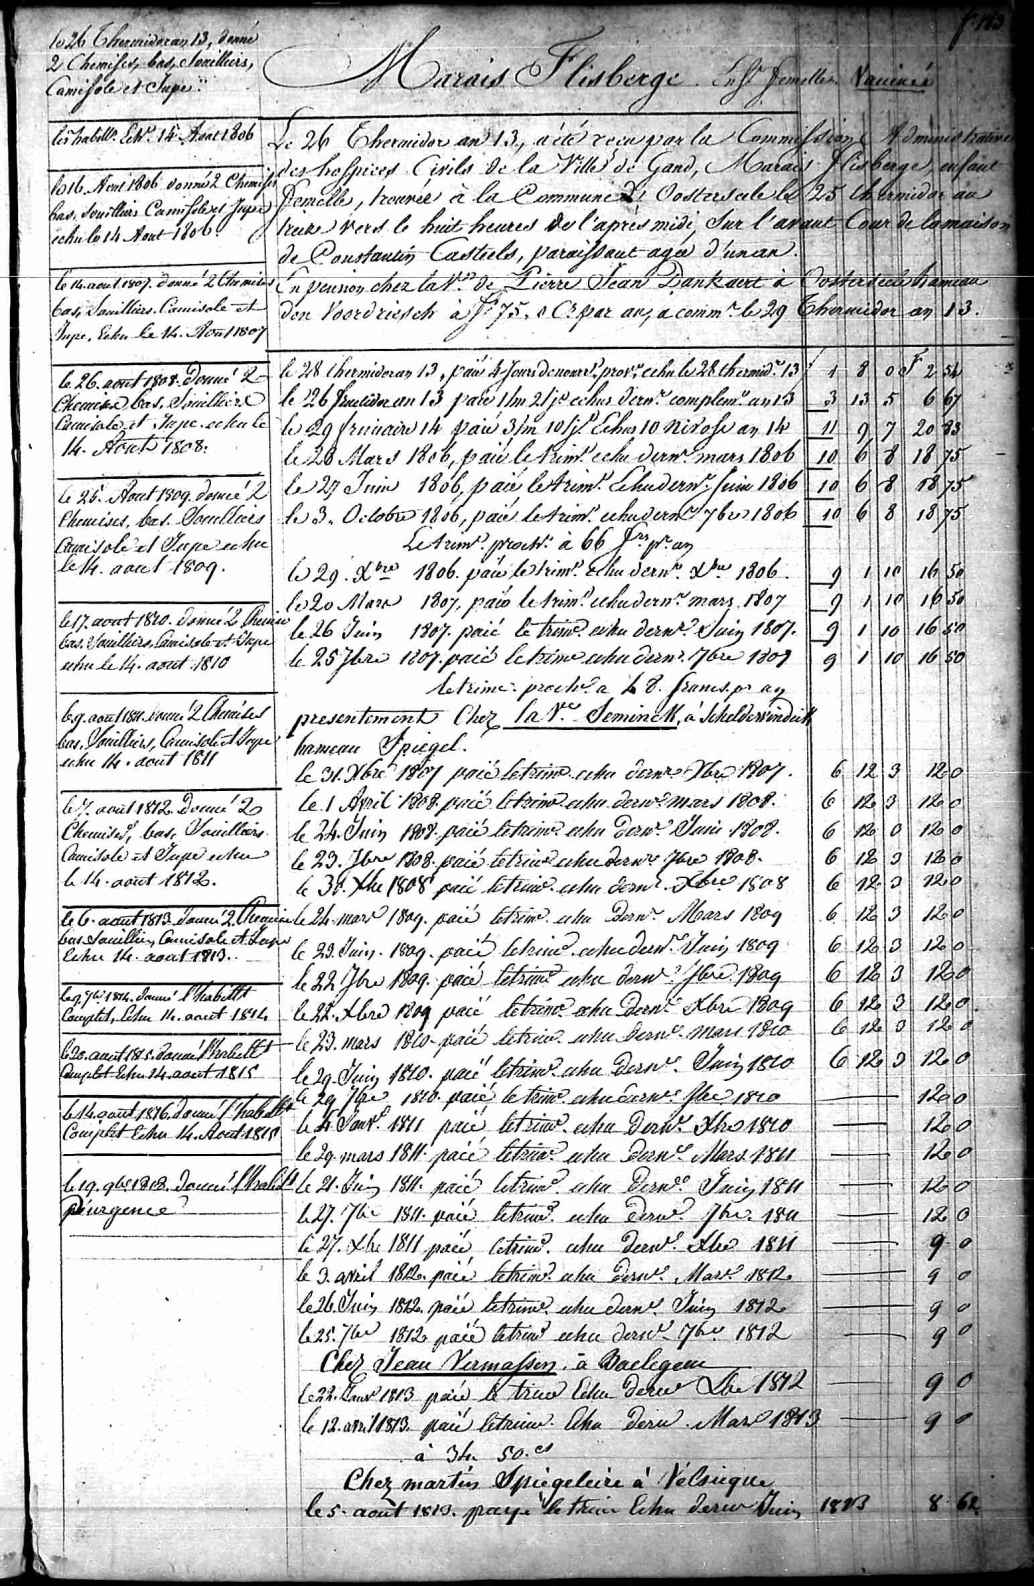 f° 113
le 26 Thermidor an 13, donné
2 Chemises, bas, Souilliers,
Camisole et Jupe
Marais Flisberge. Enft. femelle. Vaccinée
les habillts. Echs. 14 Aout 1806
le 16. Aout 1806 donné 2 Chemises
bas, Souilliers Camisole et Jupe
echu le 14 Aout 1806.
le 14 aout 1807. donné 2 Chemises
bas, Souilliers. Camisole et
Jupe, Echu le 14. Aout 1807
le 26. aout 1808. Donné 2
Chemises bas, Souilliers
Camisole et Jupe echu le
14. Aout 1808.
le 25. Aout 1809. donné 2
Chemises, bas. Souilliers
Camisole et Jupe echu
le 14. aout 1809.
le 17. aout 1810. donné 2 Chemises
bas, Souilliers, Camisole et Jupe
echu le 14. aout 1810
le 9. aout 1811. donné 2 Chemises
bas, Souilliers, Camisole et Jupe
echu 14. aout 1811
le 7. aout 1812. Donné 2
Chemises, bas, Souilliers
Camisole et Jupe echu
le 14. aout 1812.
le 6. aout 1813. donné 2. Chemises
bas Souilliers, Camisole et Jupe
Echu 14. aout 1813.
le 9. 7bre 1814. donné l'habillt
Complet, Echu 14. aout 1814
le 20. aout 1815. donné l'habillt
Complet Echu 14. aout 1815
le 14. aout 1816. donné l'habillt
Complet Echu 14. Aout 1815
le 19. 9bre 1818. donné l'habillt
d'urgence
Le 26 Thermidor an 13., a été reçu par la Commission Administrative
des hospices Civils de la Ville de Gand, Marais Flisberge, enfant
femelle, trouvée à la Commune d'Oosterzeele le 25 thermidor an
treize vers le huit heures de l'apres midi, Sur l'avant Cour de la maison
de Constantin Casteels, paraissant agée d'un an.
En pension chez la Ve. de Pierre Jean Dankaert à Oosterzeele hameau
den Voordriesch à fs. 75, 0 Cs. par an, a comm. le 29 Thermidor an 13.
le 28 thermidor an 13, paié 4 Jours de nourre. prove. echu le 28 thermidr. 13 1 8 0 F 2 54
le 26 fructidor an 13 paié 1 m 2 j. echus dern. complemr. an 13 3 13 5 6 67
le 29 frimaire 14 paié 3 m 10 js. Echus 10 Nivose an 14 11 9 7 20 83
le 28 Mars 1806, paié le trimr. echu dernr. mars 1806 10 6 8 18 75
le 27 Juin 1806, paié le trimr. Echu dernr. Juin 1806 10 6 8 18 75
le 3. Octobre 1806, paié le trimr. echu dernr. 7bre 1806 10 6 8 18 75
Le trimr. prochn. à 66 frs. pr. an
le 29. Xbre 1806. paié le trimr. echu dernr. Xbre 1806. 9 1 10 16 50
le 20 Mars 1807, paié le trimr. echu dernr. mars 1807 9 1 10 16 50
le 26 Juin 1807. paié le trimr. echu dernr. Juin 1807. 9 1 10 16 50
le 25 7bre 1807. paié le trimr. echu dernr. 7bre 1807 9 1 10 16 50
le trimr. prochn. a 48. francs pr an
presentement Chez la Ve. Seminck, à Schelderwindeke
hameau Spiegel.
le 31. Xbre 1807 paié le trimr. echu dernr. Xbre 1807. 6 12 3 12 0
le 1 Avril 1808 paié le trimr. echu dernr. mars 1808. 6 12 3 12 0
le 24. Juin 1808. paié le trimr. echu dernr. Juin 1808. 6 12 3 12 0
le 23. 7bre 1808. paié le trimr. echu dernr. 7bre 1808. 6 12 3 12 0
le 30. Xbre 1808 paié le trimr. echu dernr. Xbre 1808 6 12 3 12 0
le 24. mars 1809. paié le trimr. echu dernr. Mars 1809 6 12 3 12 0
le 23. Juin. 1809. paié le trimr. echu dernr. Juin 1809 6 12 3 12 0
le 22 7bre 1809. paié le trimr. echu dernr. 7bre 1809 6 12 3 12 0
le 22. Xbre 1809 paié le trimr. echu dernr. Xbre 1809 6 12 3 12 0
le 23. mars 1810. paié le trimr. echu dernr. mars 1810 6 12 3 12 0
le 29. Juin 1810. paié le trimr. echu dernr. Juin 1810 6 12 3 12 0
le 29 7bre 1810. paié le trimr. echu dernr. 7bre 1810 12 0
le 4 Janvr. 1811 paié le trimr. echu dernr. Xbre 1810 12 0
le 29. mars 1811. paié le trimr. echu dernr. Mars 1811 12 0
le 21. Juin 1811. paié le trimr. echu dernr. Juin 1811 12 0
le 27. 7bre 1811. paié le trimr. echu dernr. 7bre. 1811 12 0
le 27. Xbre 1811 paié, le trimr. echu dernr. Xbre 1811 9 0
le 3. avril 1812. paié le trimr. echu dernr. Mars. 1812. 9 0
le 26. Juin 1812. paié le trimr. echu dernr. Juin 1812 9 0
le 25. 7bre 1812 paié le trimr. echu dernr. 7bre 1812 9 0
Chez Jean Vermassen. à Baelegem
le 22. Janvr 1813 paié le trimr Echu dernr Xbre 1812 9 0
le 12. avril 1813. paié le trimr. Echu dernr. Mars 1813 9 0
à 34. 50. cs
Chez martin Spiegeleire à Velsicque
le 5. août 1813. payé le trimr Echu dernr Juin 1813 8 62